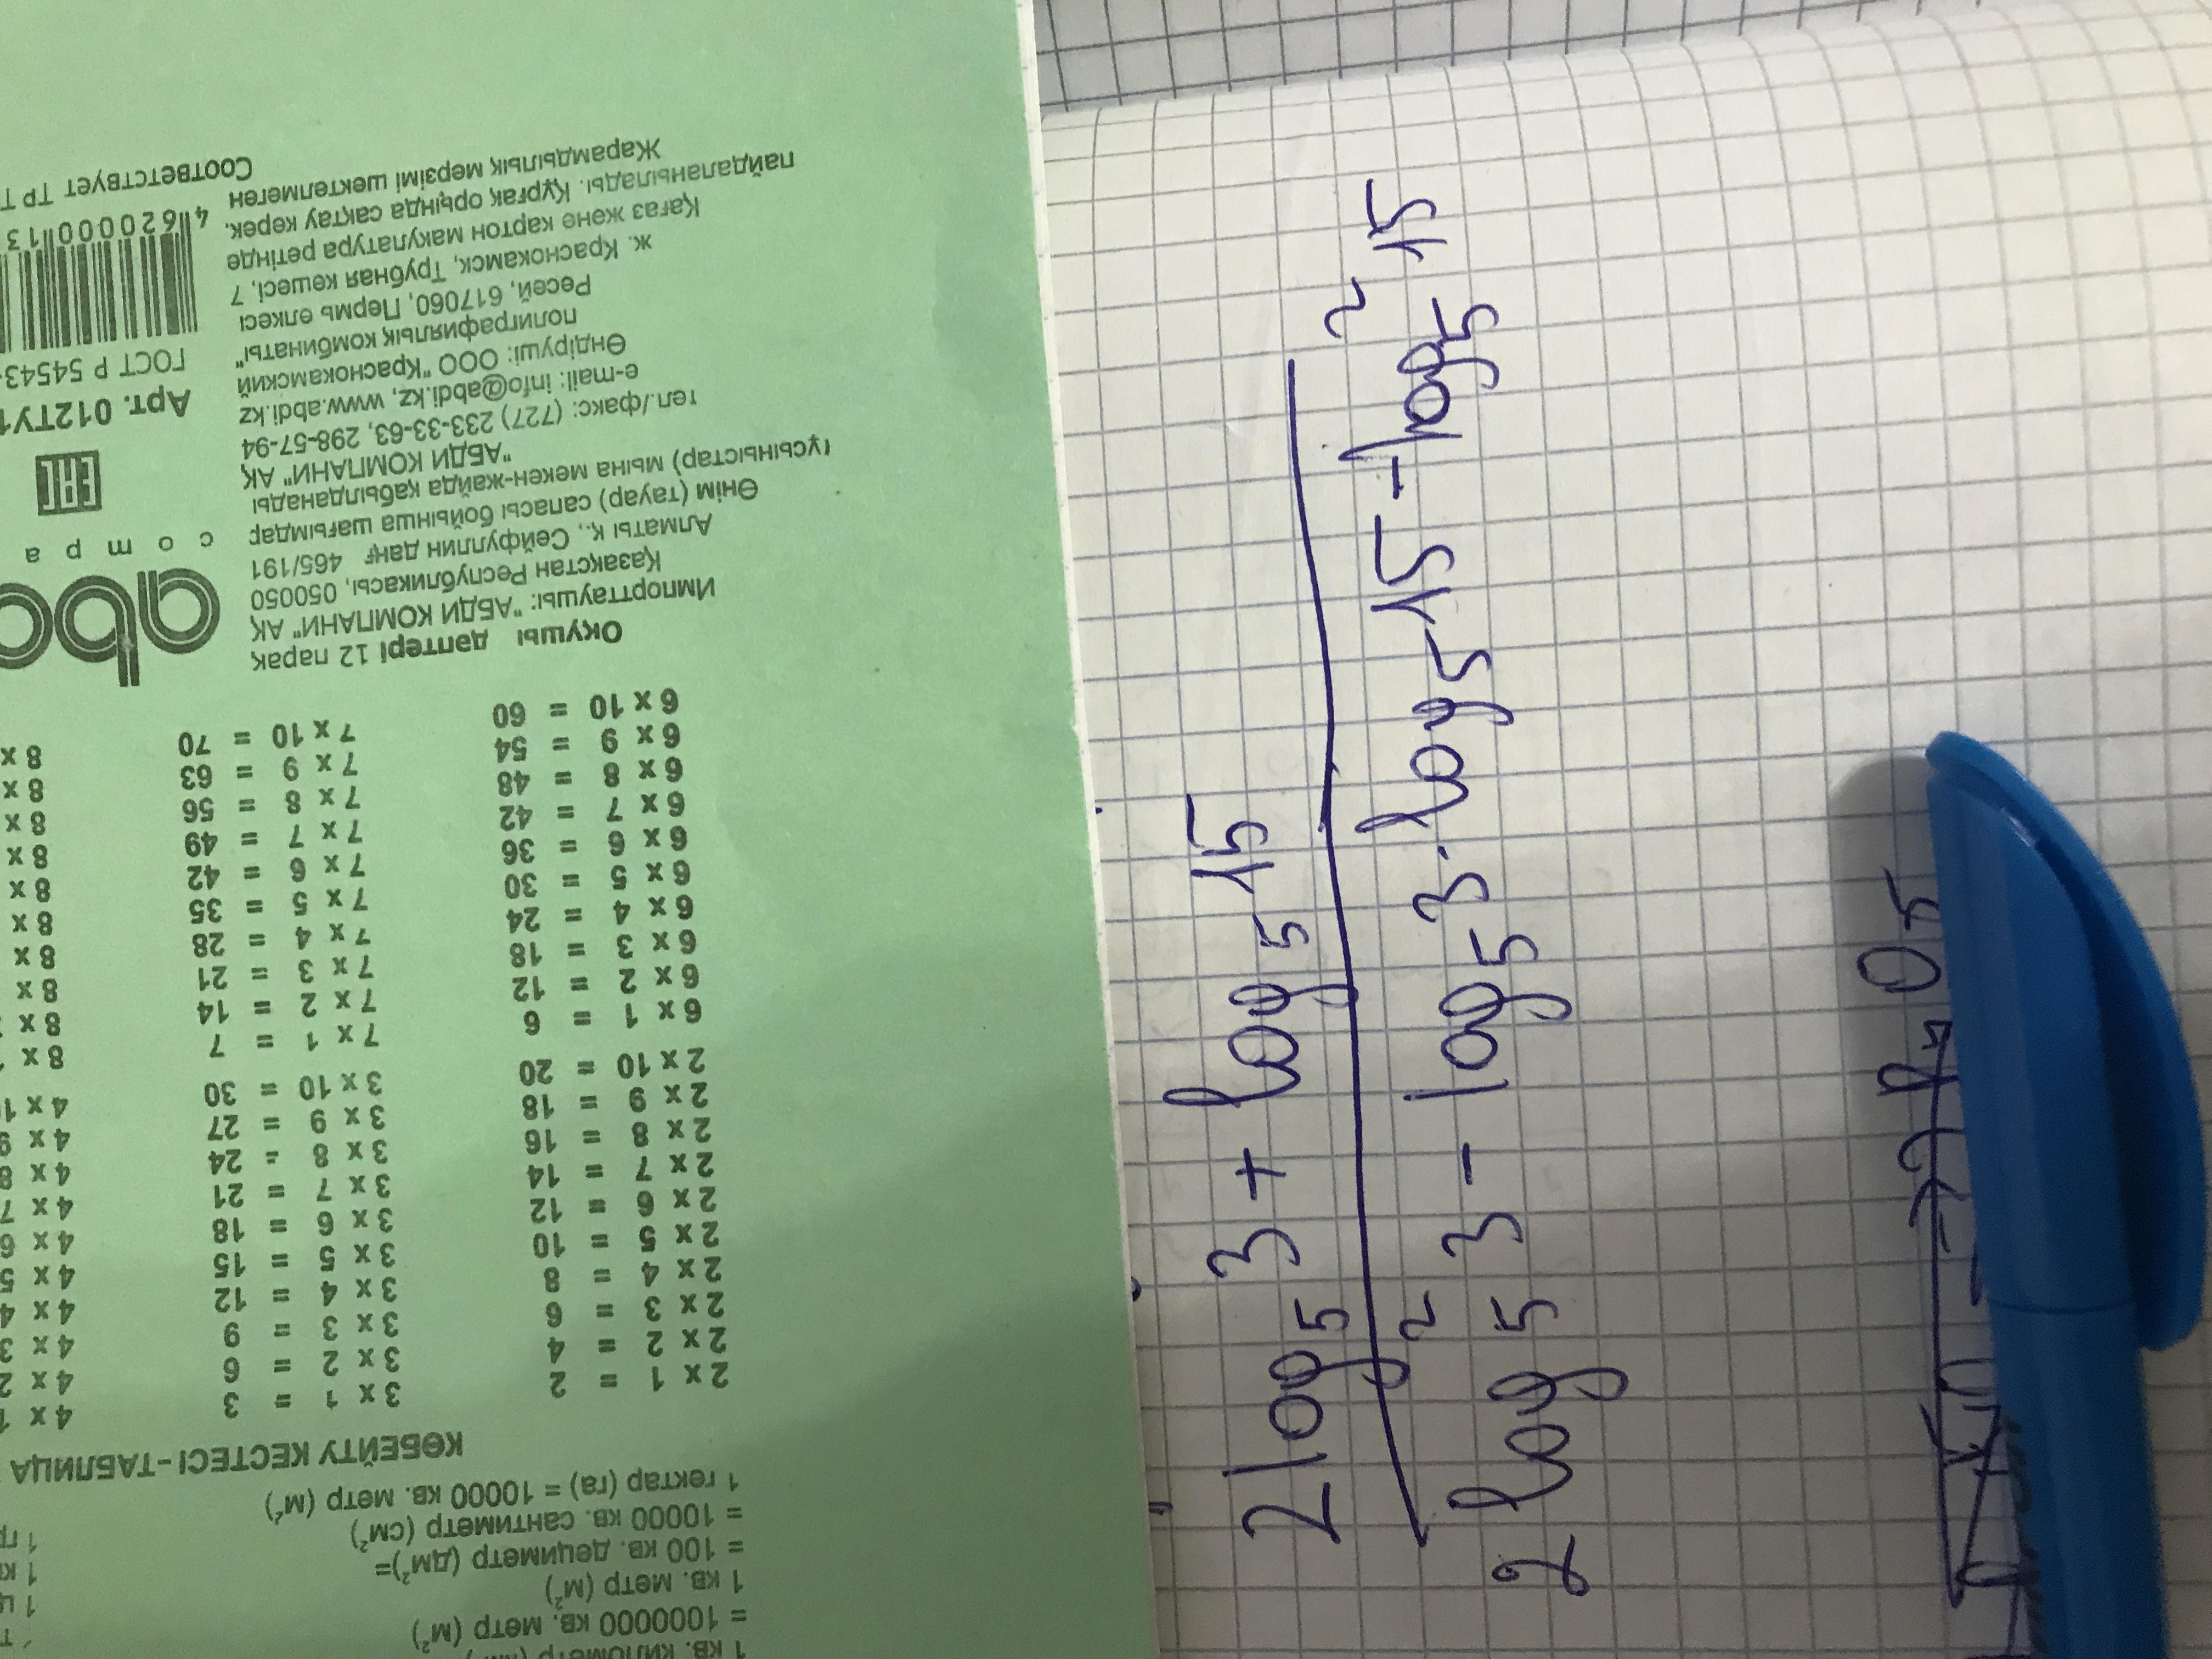 2 log₅ 3 + log₅ 15
2 log₅² 3 - log₅ 3 · log₅ 15 - log₅² 15
1 кв. метр (м²)
= 100 кв. дециметр (дм²)=
= 10000 кв. сантиметр (см²)
= 1000000 кв. метр (м²)
1 гектар (га) = 10000 кв. метр (м²)
КӨБЕЙТУ КЕСТЕСІ-ТАБЛИЦА
2 x 1 = 2
2 x 2 = 4
2 x 3 = 6
2 x 4 = 8
2 x 5 = 10
2 x 6 = 12
2 x 7 = 14
2 x 8 = 16
2 x 9 = 18
2 x 10 = 20
3 x 1 = 3
3 x 2 = 6
3 x 3 = 9
3 x 4 = 12
3 x 5 = 15
3 x 6 = 18
3 x 7 = 21
3 x 8 = 24
3 x 9 = 27
3 x 10 = 30
6 x 1 = 6
6 x 2 = 12
6 x 3 = 18
6 x 4 = 24
6 x 5 = 30
6 x 6 = 36
6 x 7 = 42
6 x 8 = 48
6 x 9 = 54
6 x 10 = 60
7 x 1 = 7
7 x 2 = 14
7 x 3 = 21
7 x 4 = 28
7 x 5 = 35
7 x 6 = 42
7 x 7 = 49
7 x 8 = 56
7 x 9 = 63
7 x 10 = 70
Оқушы дәптері 12 парақ
Импорттаушы: "АБДИ КОМПАНИ" АҚ
Қазақстан Республикасы, 050050
Алматы қ., Сейфуллин даңғ 465/191
Өнім (тауар) сапасы бойынша шағымдар
(ұсыныстар) мына мекен-жайда қабылданады
"АБДИ КОМПАНИ" АҚ
тел./факс: (727) 233-33-63, 298-57-94
e-mail: info@abdi.kz, www.abdi.kz
Өндіруші: ООО "Краснокамский
полиграфиялық комбинаты"
Ресей, 617060, Пермь өлкесі
ж. Краснокамск, Трубная көшесі, 7
Қағаз және картон макулатура ретінде
пайдаланылады. Құрғақ орында сақтау керек.
Жарамдылық мерзімі шектелмеген
abc
ЕАС
Арт. 012ТУ1
ГОСТ Р 54543-
4 620000 13
Соответствует ТР Т